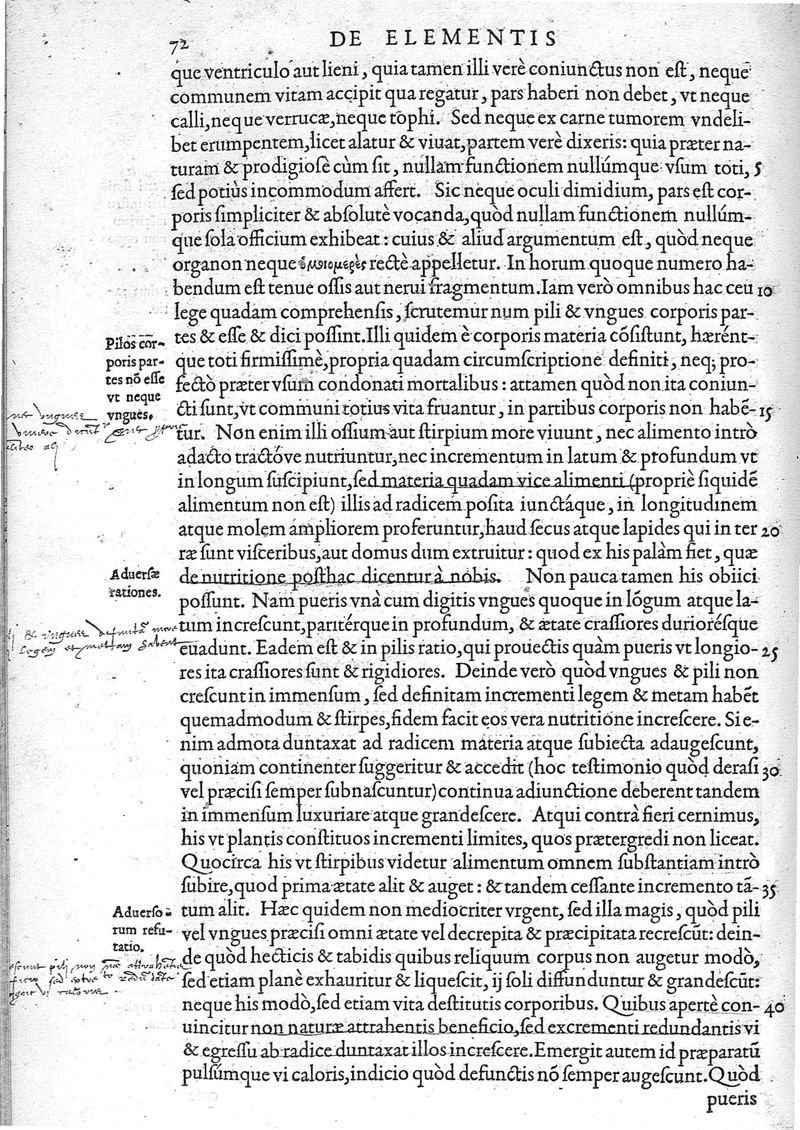 72
DE ELEMENTIS
que ventriculo aut lieni, quia tamen illi verè coniunctus non est, neque
communem vitam accipit qua regatur, pars haberi non debet, vt neque
calli, neque verrucæ, neque tophi. Sed neque ex carne tumorem vndeli-
bet erumpentem, licet alatur & viuat, partem verè dixeris: quia præter na-
turam & prodigiosè cùm sit, nullam functionem nullúmque vsum toti, 5
sed potiùs incommodum affert. Sic neque oculi dimidium, pars est cor-
poris simpliciter & absolutè vocanda, quòd nullam functionem nullúm-
que sola officium exhibeat: cuius & aliud argumentum est, quòd neque
organon neque ὁμοιομερὲς rectè appelletur. In horum quoque numero ha-
bendum est tenue ossis aut nerui fragmentum. Iam verò omnibus hac ceu 10
lege quadam comprehensis, scrutemur num pili & vngues corporis par-
tes & esse & dici possint. Illi quidem è corporis materia cōsistunt, hærént-
que toti firmissimè, propria quadam circumscriptione definiti, neq; pro-
fectò præter vsum condonati mortalibus: attamen quòd non ita coniun-
cti sunt, vt communi totius vita fruantur, in partibus corporis non habē- 15
tur. Non enim illi ossium aut stirpium more viuunt, nec alimento intrò
adacto tractóve nutriuntur, nec incrementum in latum & profundum vt
in longum suscipiunt, sed materia quadam vice alimenti (propriè siquidē
alimentum non est) illis ad radicem posita iunctáque, in longitudinem
atque molem ampliorem proferuntur, haud secus atque lapides qui in ter 20
ræ sunt visceribus, aut domus dum extruitur: quod ex his palàm fiet, quæ
de nutritione posthac dicentur à nobis. Non pauca tamen his obiici
possunt. Nam pueris vnà cum digitis vngues quoque in lōgum atque la-
tum increscunt, paritérque in profundum, & ætate crassiores duriorésque
euadunt. Eadem est & in pilis ratio, qui prouectis quàm pueris vt longio- 25
res ita crassiores sunt & rigidiores. Deinde verò quòd vngues & pili non
crescunt in immensum, sed definitam incrementi legem & metam habēt
quemadmodum & stirpes, fidem facit eos vera nutritione increscere. Si e-
nim admota duntaxat ad radicem materia atque subiecta adaugescunt,
quoniam continenter suggeritur & accedit (hoc testimonio quòd derasi 30
vel præcisi semper subnascuntur) continua adiunctione deberent tandem
in immensum luxuriare atque grandescere. Atqui contrà fieri cernimus,
his vt plantis constituos incrementi limites, quos prætergredi non liceat.
Quocirca his vt stirpibus videtur alimentum omnem substantiam intrò
subire, quod prima ætate alit & auget: & tandem cessante incremento tā- 35
tum alit. Hæc quidem non mediocriter vrgent, sed illa magis, quòd pili
vel vngues præcisi omni ætate vel decrepita & præcipitata recrescūt: dein-
de quòd hecticis & tabidis quibus reliquum corpus non augetur modò,
sed etiam planè exhauritur & liquescit, ij soli diffunduntur & grandescūt:
neque his modò, sed etiam vita destitutis corporibus. Quibus apertè con- 40
uincitur non naturæ attrahentis beneficio, sed excrementi redundantis vi
& egressu ab radice duntaxat illos increscere. Emergit autem id præparatū
pulsúmque vi caloris, indicio quòd defunctis nō semper augescunt. Quòd
pueris
Pilos cor-
poris par-
tes nō esse
vt neque
vngues.
Aduersæ
rationes.
& vngues
legem et metam habent
Aduerso-
rum refu-
tatio.
pili non